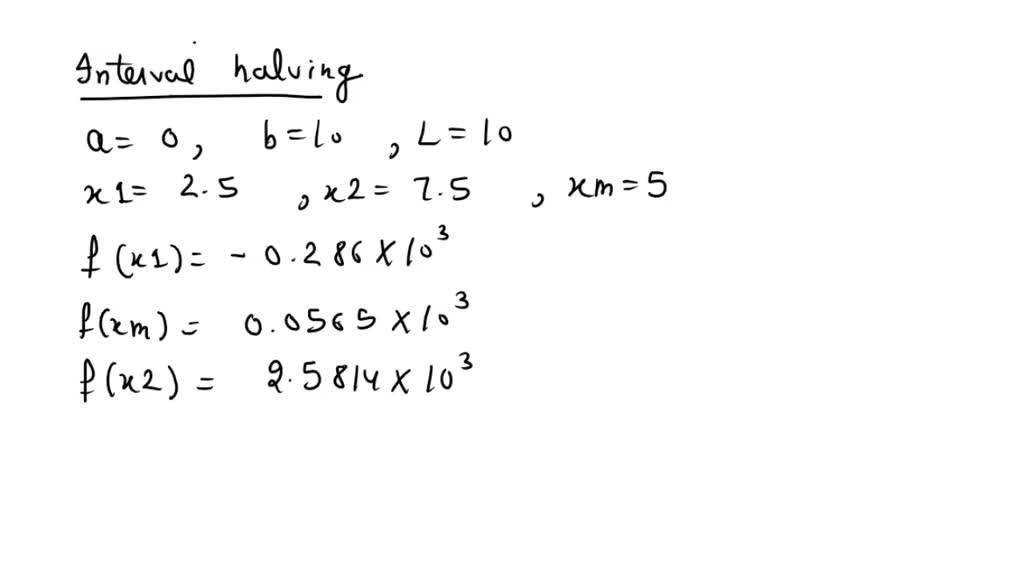 Interval halving
a= 0, b=10, L=10
x1= 2.5, x2= 7.5, xm=5
f(x1)= - 0.286 X 10³
f(xm) = 0.0565 X 10³
f(x2) = 2.5814 X 10³